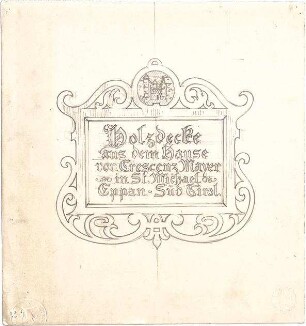 Holzdecke
aus dem Hause
von Crescenz Mayer
in St. Michael
Eppan - Süd Tirol.